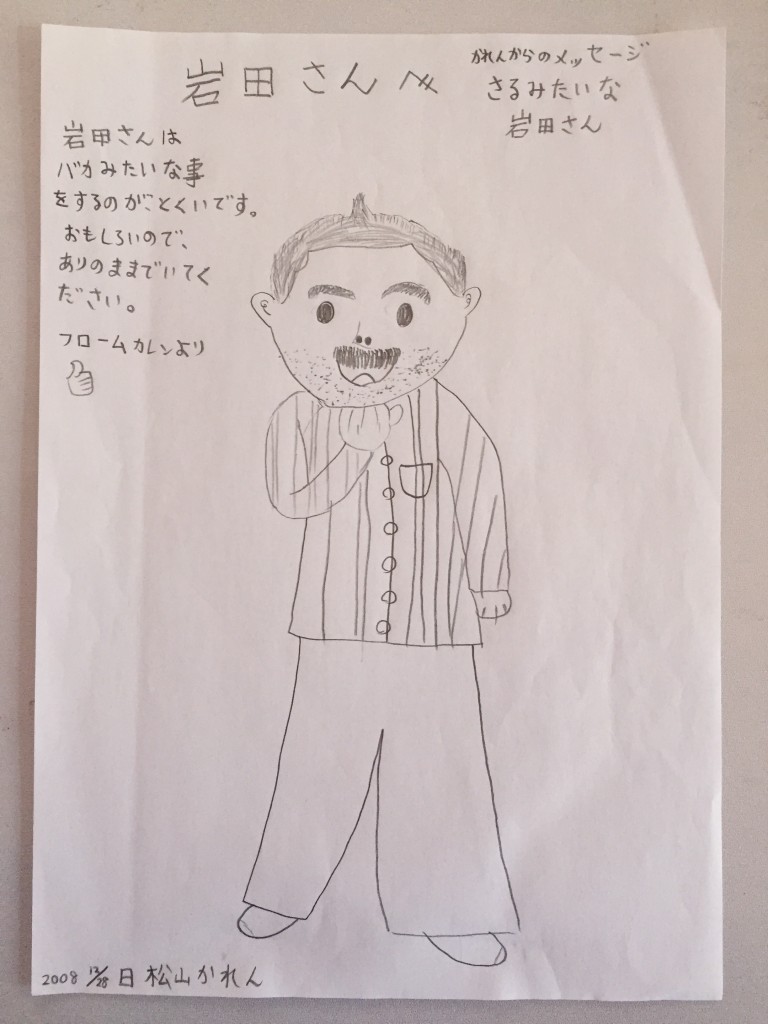 岩田さんへ
かれんからのメッセージ
さるみたいな
岩田さん
岩甲さんは
バカみたいな事
をするのがとくいです。
おもしろいので、
ありのままでいてく
ださい。
フロームカレンより
2008 12/28日 松山かれん